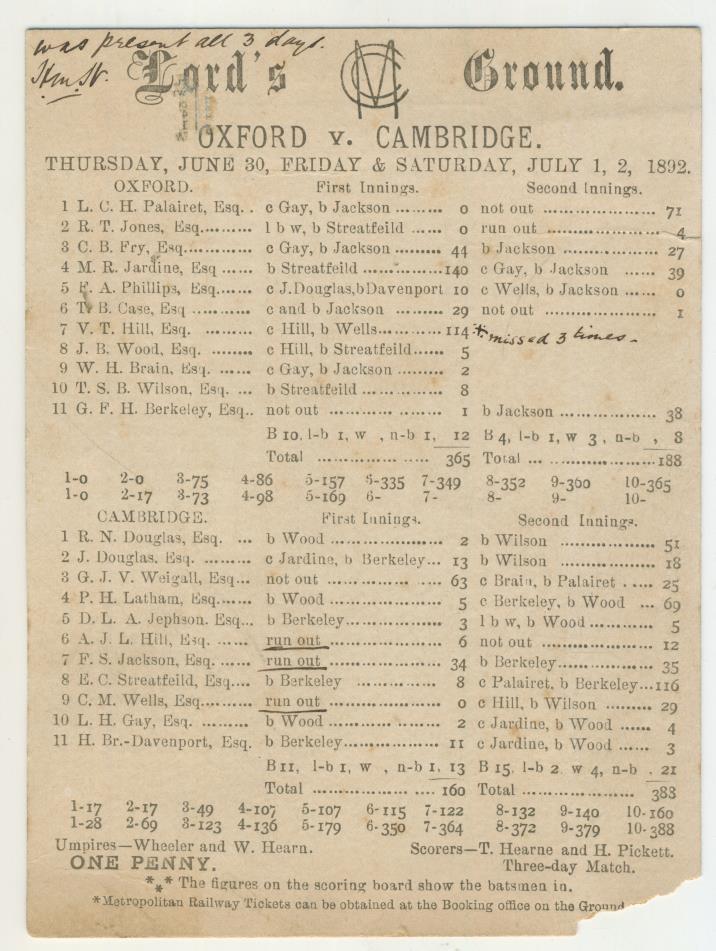 was present all 3 days.
Lord's MCC Ground.
OXFORD v. CAMBRIDGE.
THURSDAY, JUNE 30, FRIDAY & SATURDAY, JULY 1, 2, 1892.
OXFORD. First Innings. Second Innings.
1 L. C. H. Palairet, Esq. . c Gay, b Jackson ......... 0 not out ..................... 71
2 R. T. Jones, Esq....... l b w, b Streatfeild ...... 0 run out ..................... 4
3 C. B. Fry, Esq............ c Gay, b Jackson ......... 44 b Jackson .................. 27
4 M. R. Jardine, Esq ...... b Streatfeild ...............140 c Gay, b Jackson ...... 39
5 F. A. Phillips, Esq....... c J.Douglas,bDavenport 10 c Wells, b Jackson ...... 0
6 T. B. Case, Esq ......... c and b Jackson ......... 29 not out ..................... 1
7 V. T. Hill, Esq. ......... c Hill, b Wells............114 * missed 3 times -
8 J. B. Wood, Esq. ........ c Hill, b Streatfeild...... 5
9 W. H. Brain, Esq. ... c Gay, b Jackson ......... 2
10 T. S. B. Wilson, Esq. ... b Streatfeild ............... 8
11 G. F. H. Berkeley, Esq.. not out ..................... 1 b Jackson .................. 38
B 10, l-b 1, w , n-b 1, 12 B 4, l-b 1, w 3 , n-b , 8
Total ..................... 365 Total .....................188
1-0 2-0 3-75 4-86 5-157 6-335 7-349 8-352 9-360 10-365
1-0 2-17 3-73 4-98 5-169 6- 7- 8- 9- 10-
CAMBRIDGE. First Innings. Second Innings.
1 R. N. Douglas, Esq. ... b Wood ..................... 2 b Wilson .................. 51
2 J. Douglas, Esq. ......... c Jardine, b Berkeley... 13 b Wilson .................. 18
3 G. J. V. Weigall, Esq... not out ..................... 63 c Brain, b Palairet ..... 25
4 P. H. Latham, Esq....... b Wood ..................... 5 c Berkeley, b Wood ... 69
5 D. L. A. Jephson. Esq... b Berkeley.................. 3 l b w, b Wood ............ 5
6 A. J. L. Hill, Esq. ...... run out ..................... 6 not out ..................... 12
7 F. S. Jackson, Esq. ...... run out ..................... 34 b Berkeley.................. 35
8 E. C. Streatfeild, Esq.... b Berkeley .................. 8 c Palairet, b Berkeley...116
9 C. M. Wells, Esq......... run out ..................... 0 c Hill, b Wilson ......... 29
10 L. H. Gay, Esq. ......... b Wood ..................... 2 c Jardine, b Wood ...... 4
11 H. Br.-Davenport, Esq. b Berkeley.................. 11 c Jardine, b Wood ...... 3
B 11, l-b 1, w , n-b 1, 13 B 15, l-b 2, w 4, n-b . 21
Total ..................... 160 Total ..................... 388
1-17 2-17 3-49 4-107 5-107 6-115 7-122 8-132 9-140 10-160
1-28 2-69 3-123 4-136 5-179 6-350 7-364 8-372 9-379 10-388
Umpires—Wheeler and W. Hearn. Scorers—T. Hearne and H. Pickett.
ONE PENNY. Three-day Match.
*** The figures on the scoring board show the batsmen in.
*Metropolitan Railway Tickets can be obtained at the Booking office on the Ground